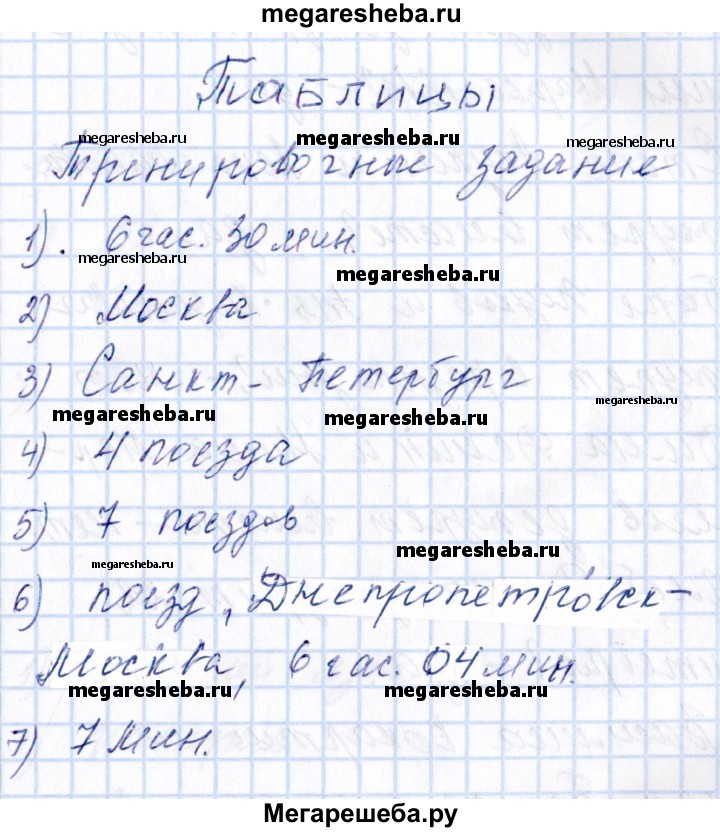 megaresheba.ru
Таблицы
megaresheba.ru megaresheba.ru megaresheba.ru
Тренировочные задание
1). 6 час. 30 мин.
megaresheba.ru megaresheba.ru
2) Москва
3) Санкт-Петербург
megaresheba.ru megaresheba.ru megaresheba.ru
4) 4 поезда
5) 7 поездов
megaresheba.ru megaresheba.ru
6) поезд „Днепропетровск-
Москва, 6 час. 04 мин.
megaresheba.ru megaresheba.ru
7) 7 мин.
Мегарешеба.ру